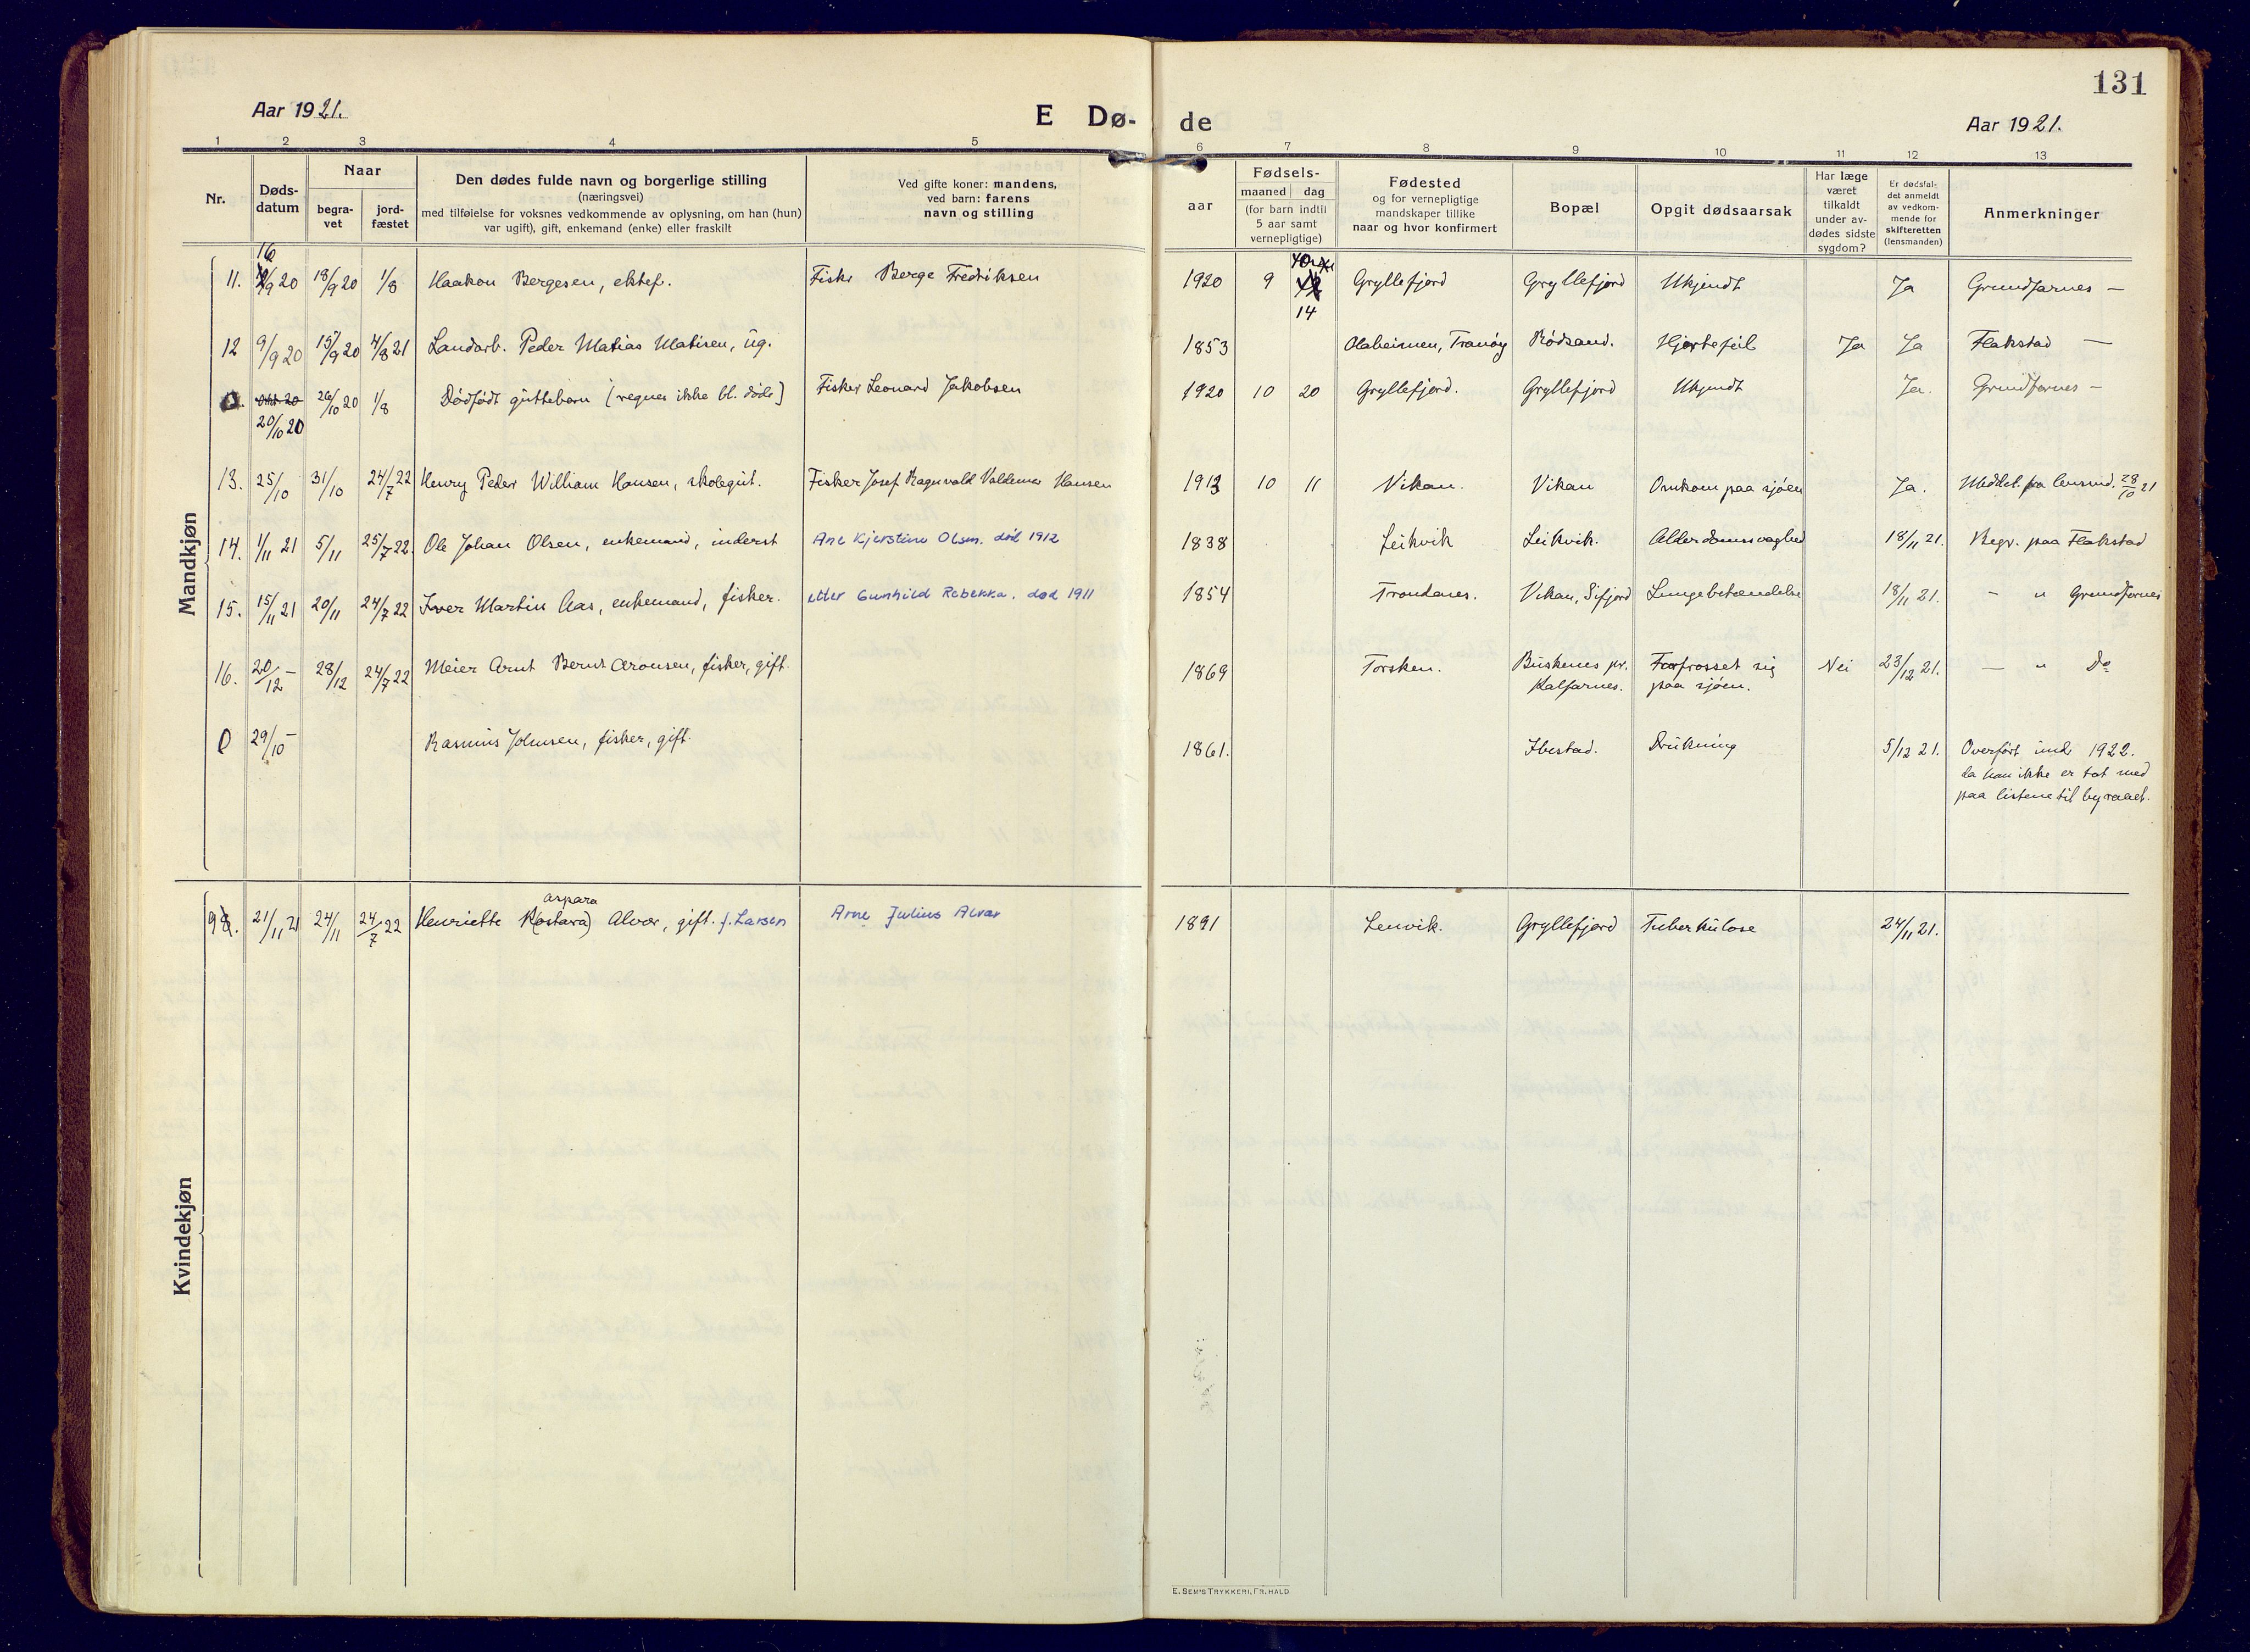 131
Aar 1921.
E Dø-
de
Aar 1921.
1 2 3 4 5 6 7 8 9 10 11 12 13
Nr.
Døds-
datum
Naar
begra-
vet
jord-
fæstet
Den dødes fulde navn og borgerlige stilling
(næringsvei)
med tilføielse for voksnes vedkommende av oplysning, om han (hun)
var ugift), gift, enkemand (enke) eller fraskilt
Ved gifte koner: mandens,
ved barn: farens
navn og stilling
aar
Fødsels-
maaned dag
(for barn indtil
5 aar samt
vernepligtige)
Fødested
og for vernepligtige
mandskaper tillike
naar og hvor konfirmert
Bopæl
Opgit dødsaarsak
Har læge
været
tilkaldt
under av-
dødes sidste
sygdom?
Er dødsfal-
det anmeldt
av vedkom-
mende for
skifteretten
(lensmanden)
Anmerkninger
Mandkjøn
16
11. /9 20 18/9 20 1/8 Haakon Bergesen, ektef. Fisker Berge Fredriksen 1920 9 14 Gryllefjord Gryllefjord Ukjendt Ja Grundfarnes —
12 9/9 20 15/9 20 4/8 21 Landarb. Peder Matias Matisen, ug. 1853 Olaheimen, Tranøy Rødsand. Hjertefeil Ja Ja Flakstad —
0. Okt 20 26/10 20 1/8 Dødfødt guttebarn (regnes ikke bl. døde) Fisker Leonard Jakobsen 1920 10 20 Gryllefjord. Gryllefjord Ukjendt Ja. Grundfarnes —
20/10 20
13. 25/10 31/10 24/7 22 Henry Peder William Hansen, skolegut. Fisker Josef Ragnvald Valdemar Hansen 1913 10 11 Vikan. Vikan Omkom paa sjøen Ja. Meddel. fra lensmd. 28/10 21
14. 1/11 21 5/11 25/7 22. Ole Johan Olsen, enkemand, inderst Ane Kjerstine Olsen. død 1912 1838 Leikvik Leikvik. Alderdomssvaghed 18/11 21. Begr. paa Flakstad
15. 15/11 21 20/11 24/7 22 Iver Martin Aas, enkemand, fisker. etter Gunhild Rebekka. død 1911 1854 Trondenes. Vikan, Sifjord Lungebetændelse 18/11 21. — " Grundfarnes
16. 20/12 — 28/12 24/7 22 Meier Arnt Bernt Aronsen, fisker, gift. 1869 Torsken. Buskenes pr. Forfrosset sig Nei 23/12 21. — " Do
Kalfarnes. paa sjøen.
0 29/10 — Rasmus Johnsen, fisker, gift. 1861. Ibestad. Drukning 5/12 21. Overført inde 1922.
da han ikke er tat med
paa listene til byraaet.
Kvindekjøn
Aspara
98. 21/11 21 24/11 24/7 22 Henriette K(astara) Alvor, gift. f. Larsen Arne Julius Alvar 1891 Lenvik. Gryllefjord Tuberkulose 24/11 21.
E. SEM'S TRYKKERI, FR. HALD